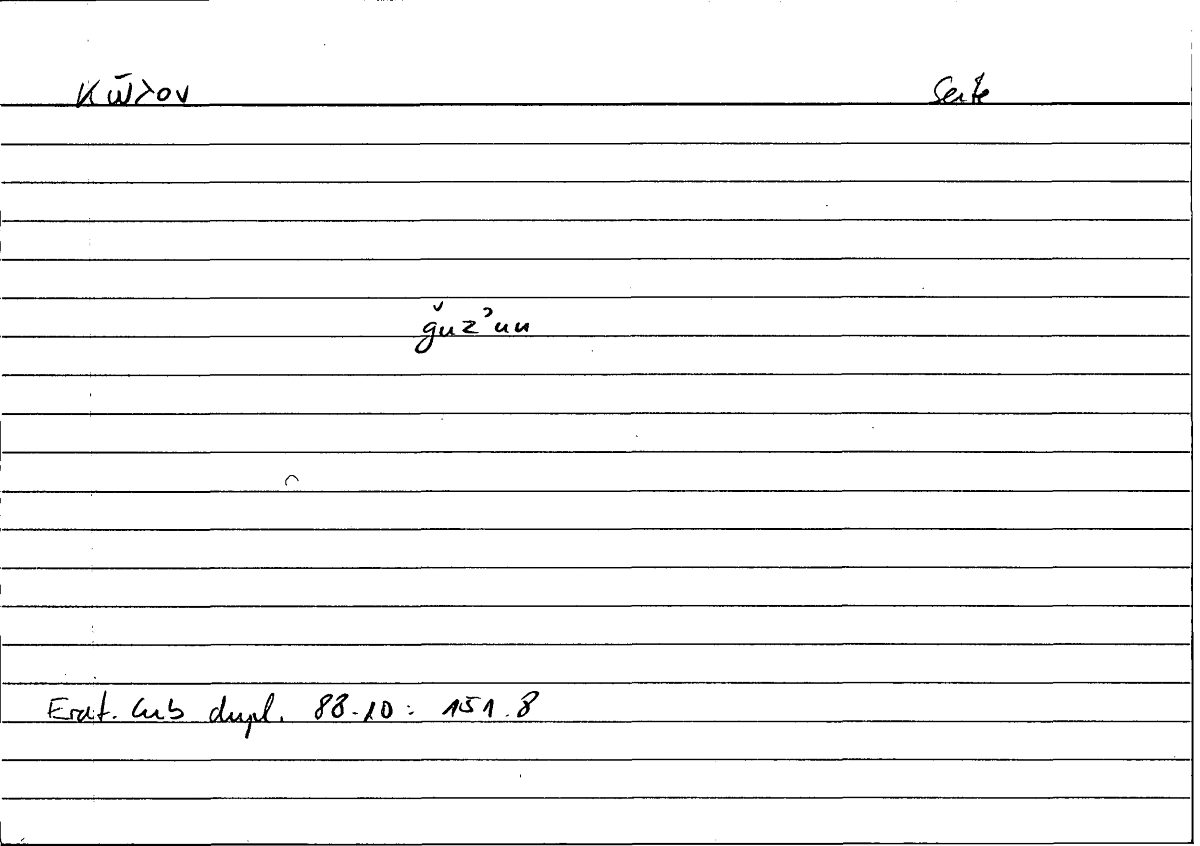 κῶλον Seite
ǧuzʾun
Erat. Cub dupl. 88.10 : 151.8